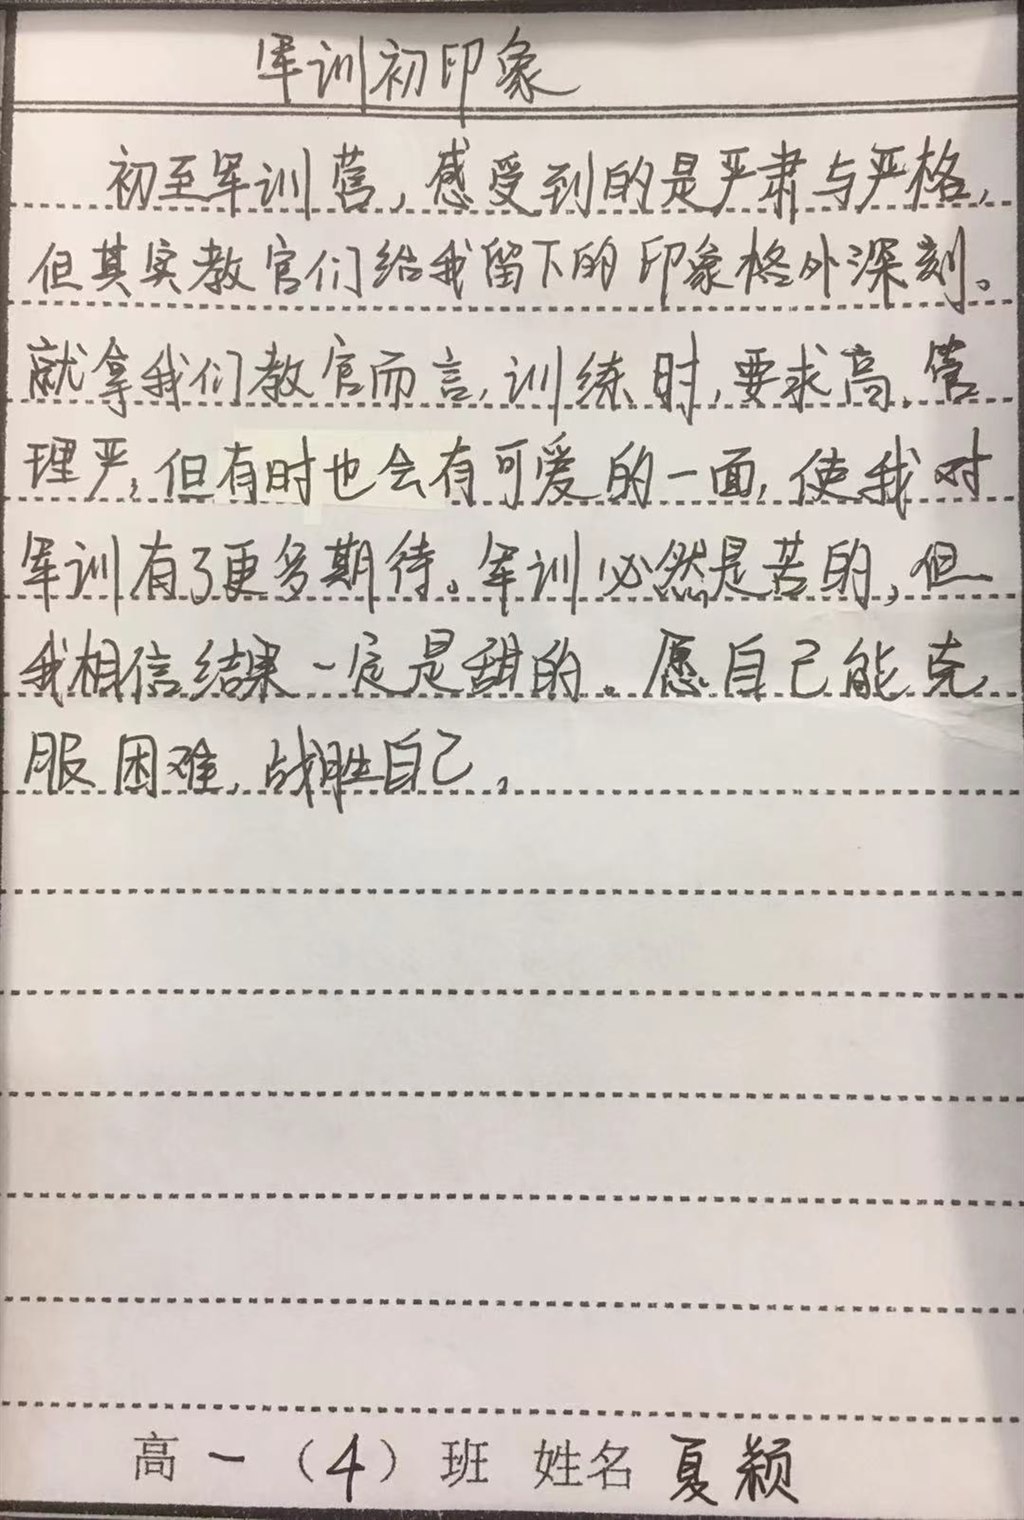 军训初印象
初至军训营,感受到的是严肃与严格,
但其实教官们给我留下的印象格外深刻。
就拿我们教官而言,训练时,要求高、管
理严,但有时也会有可爱的一面,使我对
军训有了更多期待。军训必然是苦的,但
我相信结果一定是甜的。愿自己能克
服困难,战胜自己。
高一(4)班 姓名 夏颖